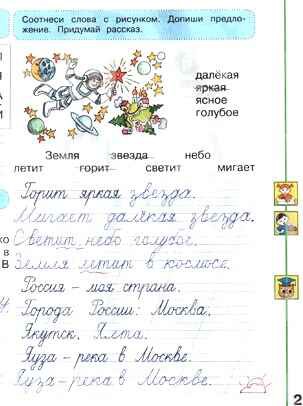 Соотнеси слова с рисунком. Допиши предло-
жение. Придумай рассказ.
далёкая
яркая
ясное
голубое
Земля звезда небо
летит горит светит мигает
Горит яркая звезда.
Мигает далёкая звезда.
Светит небо голубое.
Земля летит в космосе.
Россия – моя страна.
Города России: Москва.
Якутск. Ялта.
Яуза – река в Москве.
Яуза – река в Москве.
2